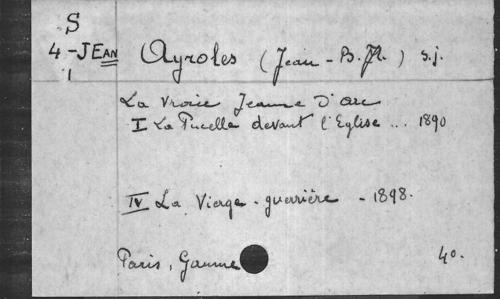 S
4-JEAN
1
Ayroles (Jean-B.J.) s.j.
La vraie Jeanne d'Arc
I La Pucelle devant l'Eglise ... 1890
IV La Vierge-guerrière - 1898.
Paris, Gaume
4o.